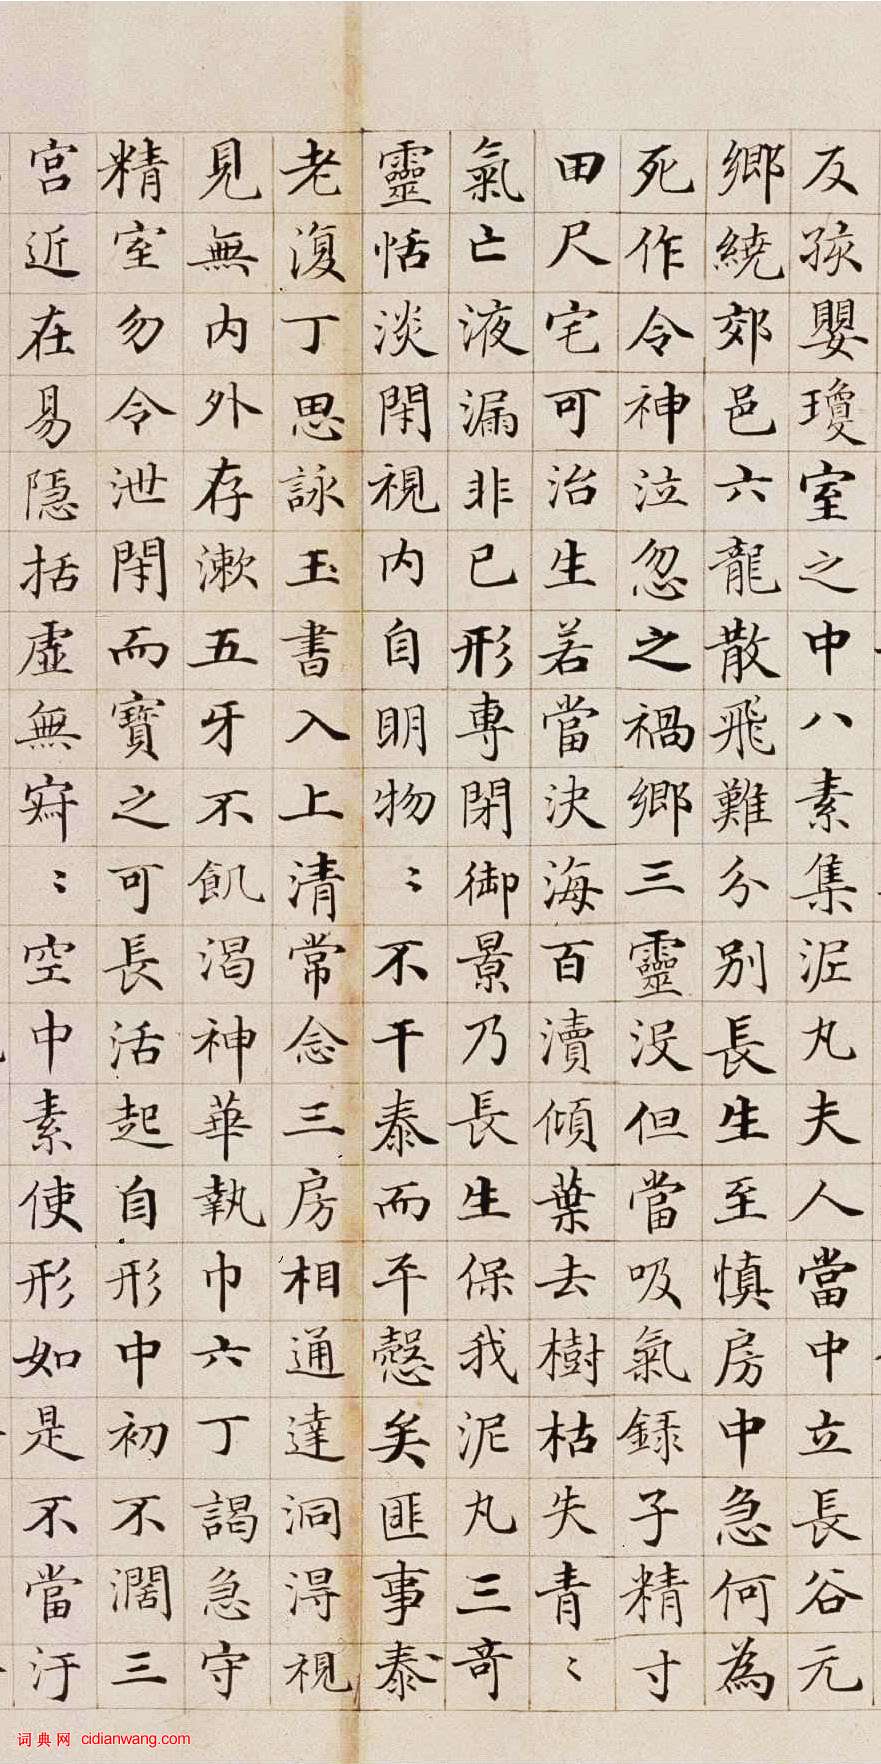 反孩嬰瓊室之中八素集泥丸夫人當中立長谷元
鄉繞郊邑六龍散飛難分別長生至慎房中急何為
死作令神泣忽之禍鄉三靈没但當吸氣録子精寸
田尺宅可治生若當決海百瀆傾葉去樹枯失青〻
氣亡液漏非己形專閉御景乃長生保我泥丸三奇
靈恬淡閑視内自明物〻不干泰而平愨矣匪事泰
老復丁思詠玉書入上清常念三房相通達洞得視
見無内外存漱五牙不飢渴神華執巾六丁謁急守
精室勿令泄閉而寶之可長活起自形中初不濶三
宫近在易隱括虚無寂〻空中素使形如是不當汙
词典网 cidianwang.com